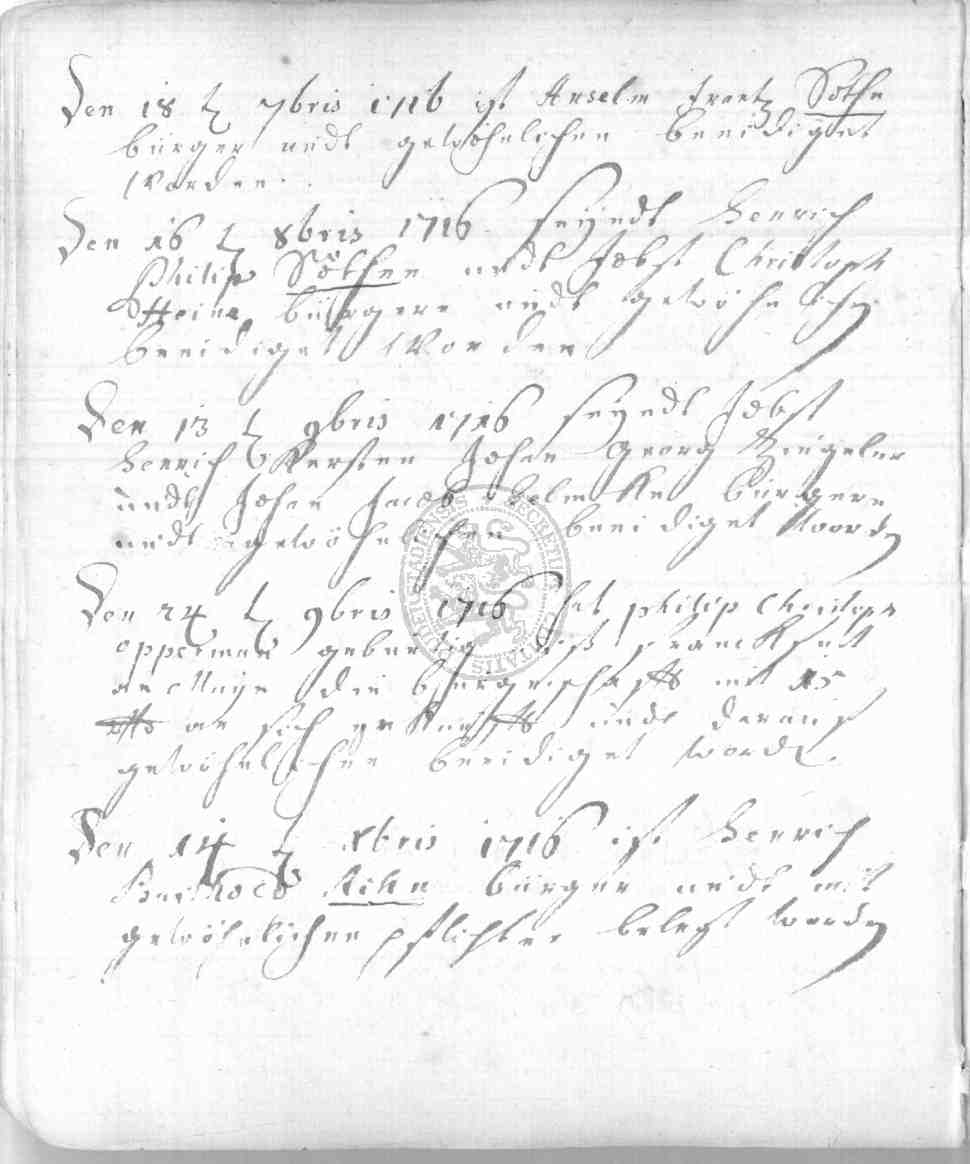 Den 18 t 7bris 1716 ist Anselm Frantz Söthe
bürger undt gewöhnlichen beeidiget
worden.
Den 16 t 8bris 1716 seyndt Henrich
Philip Söthen undt Jobst Christoph
Heine bürgere undt gewöhnlichen
beeidiget worden
Den 13 t 9bris 1716 seyndt Jobst
Henrich Kersten Johan Georg Ziegeler
undt Johan Jacob Helmke bürgere
undt gewöhnlichen beeidiget worden
Den 24 t 9bris 1716 hat Philip Christoph
Opperman gebürtig auß Franckfurt
am Mayn die bürgerschafft mit 15
an sich erkaufft undt darauf
gewöhnlichen beeidiget worden.
Den 14 t Xbris 1716 ist Henrich
bürger undt mit
gewöhnlichen pflichten belegt worden